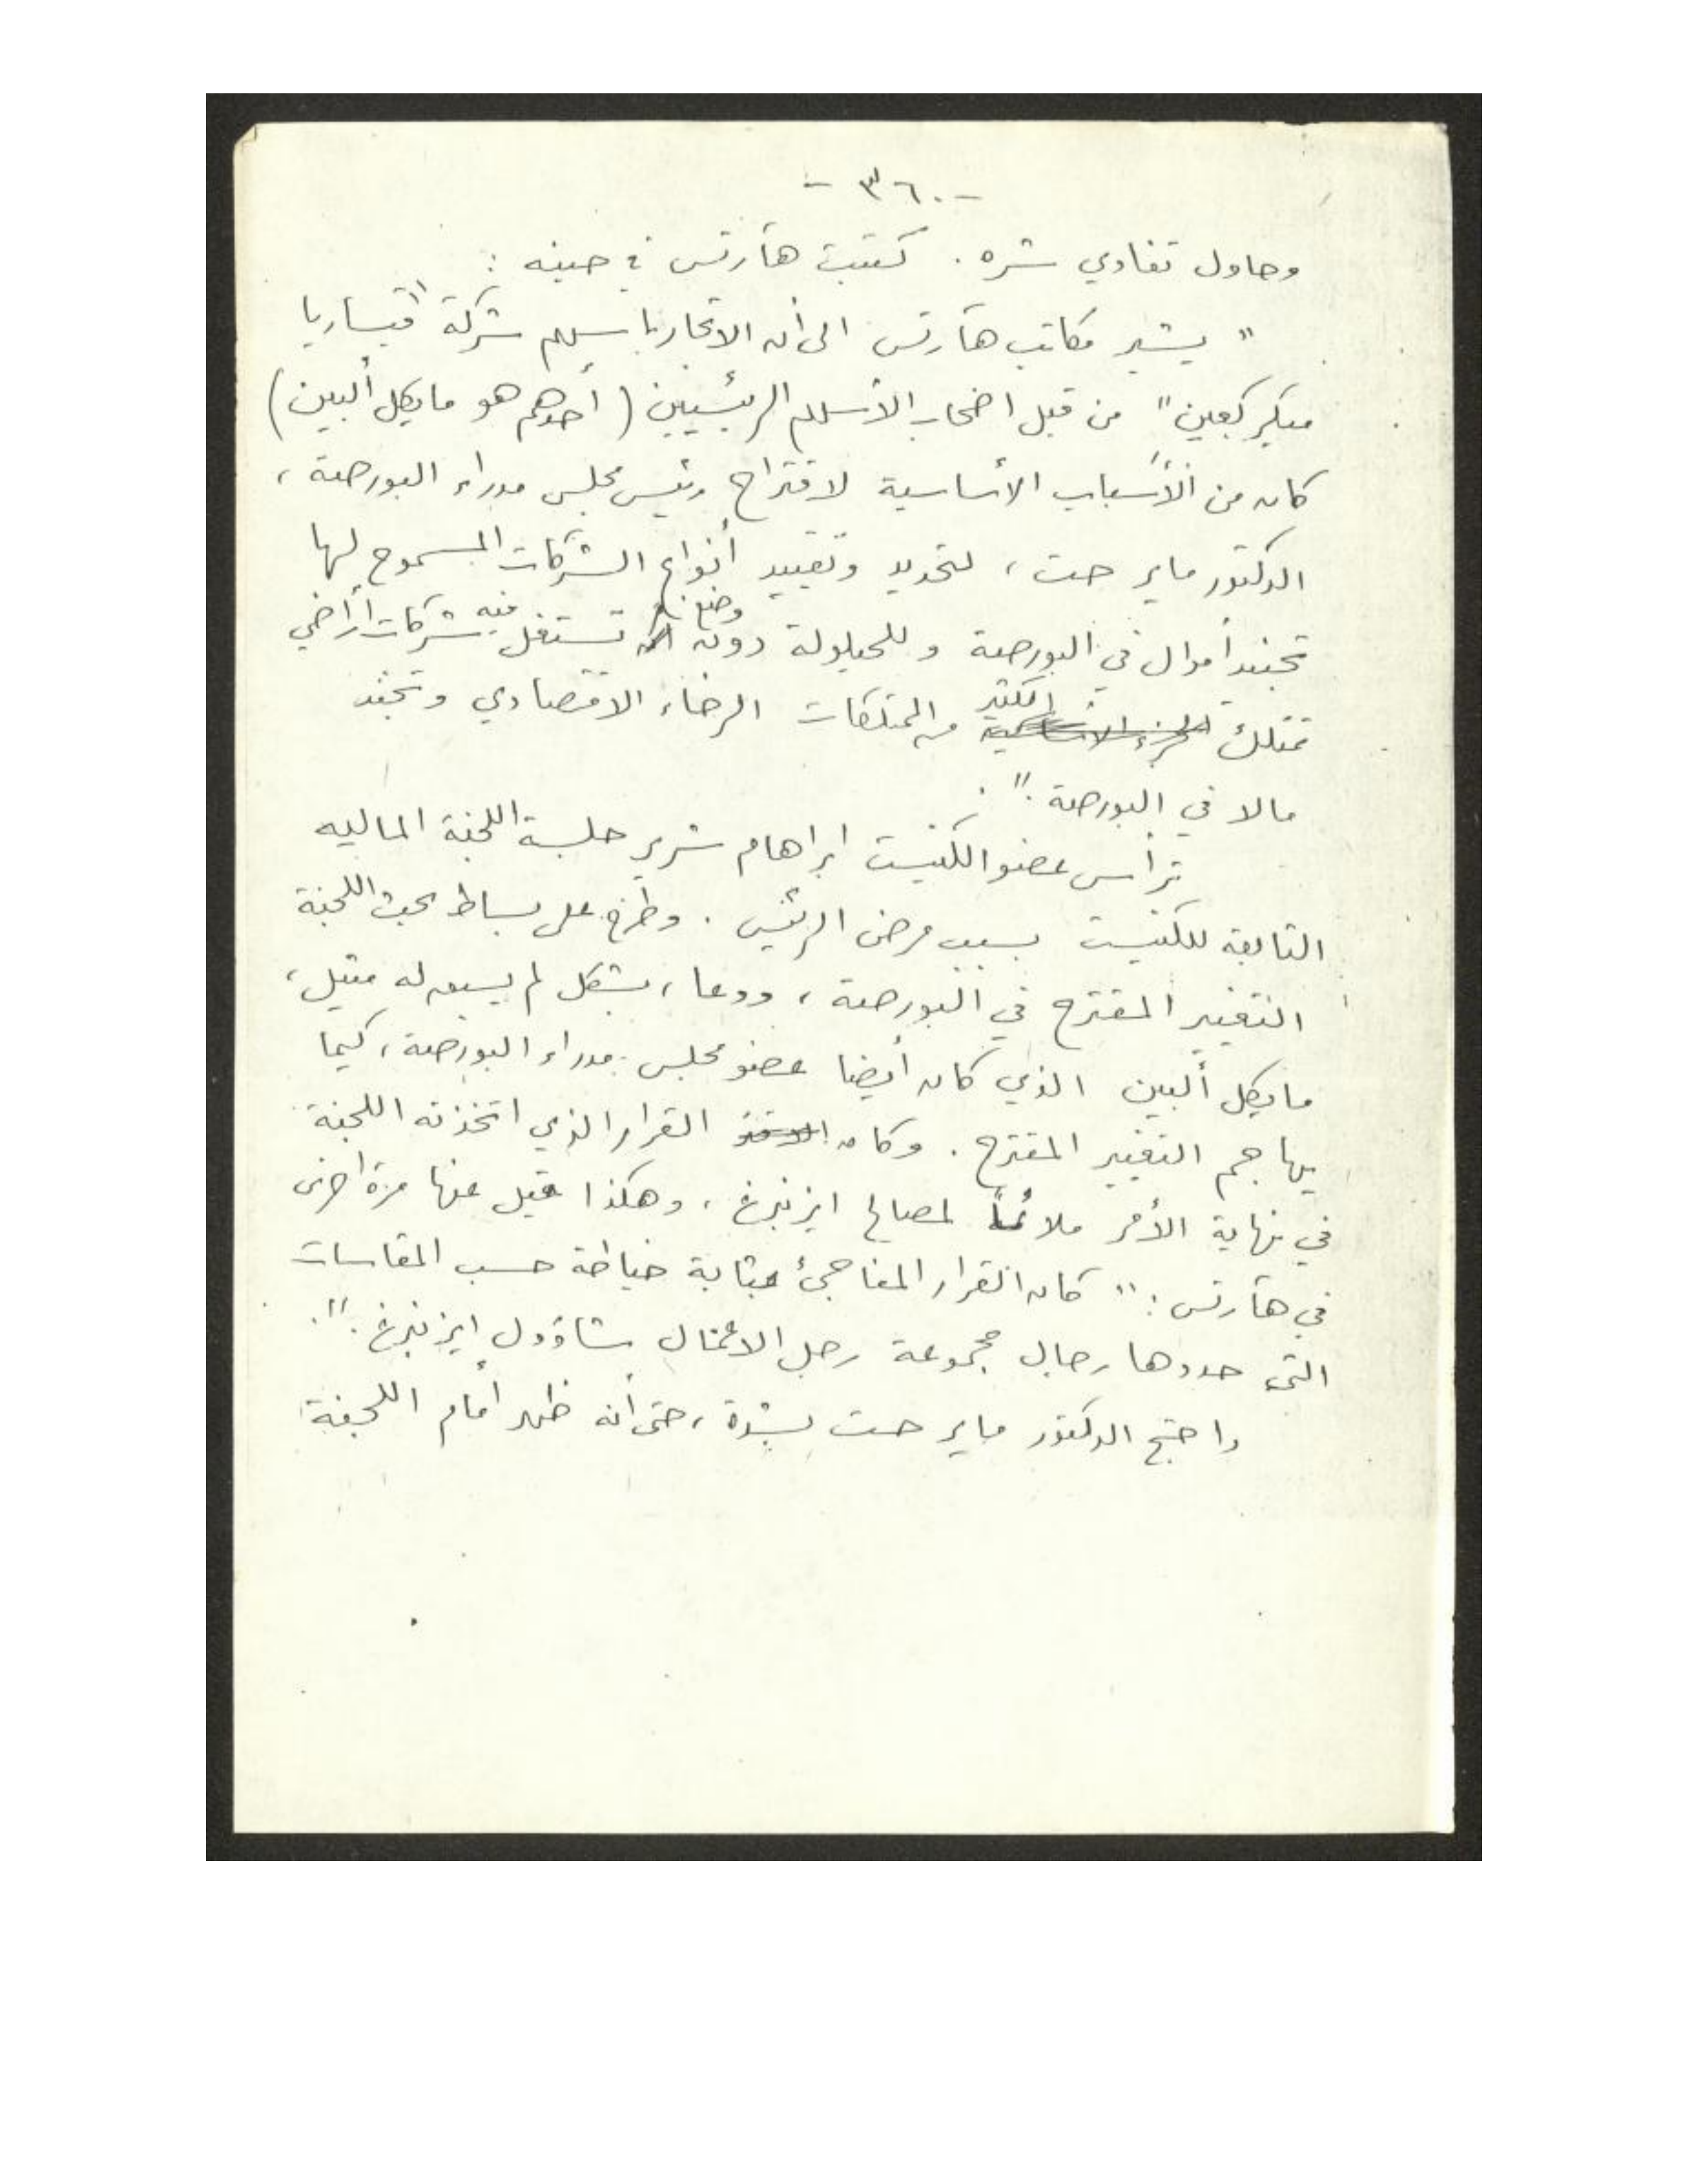 - ٣٦٠ -
وحاول تفادي شره . كتبت هآرتس في حينه :
" يشير مكاتب هآرتس الى أن الاتجار بأسهم شركة "قيساريا
من قبل اصحاب الأسهم الرئيسيين ( أحدهم هو مايكل ألبين )
كان من الأسباب الأساسية لاقتراح رئيس مجلس مدراء البورصة ،
الدكتور ماير حت ، لتحديد وتقييد أنواع الشركات المسموح لها
تجنيد أموال في البورصة وللحيلولة دون وضع تستغل فيه شركات أراضي
تمتلك الكثير من الممتلكات الرخاء الاقتصادي وتجند
مالا في البورصة " .
ترأس عضو الكنيست ابراهام شرير جلسة اللجنة الماليه
التابعة للكنيست بسبب مرض الرئيس . وطرح على بساط بحث اللجنة
التغيير المقترح في البورصة ، ودعا ، بشكل لم يسبق له مثيل ،
مايكل ألبين الذي كان أيضا عضو مجلس مدراء البورصة ، كيما
يهاجم التغيير المقترح . وكان القرار الذي اتخذته اللجنة
في نهاية الأمر ملائماً لمصالح ايزنبرغ ، وهكذا قيل عنها مرة اخرى
في هآرتس : " كان القرار المفاجئ بمثابة خياطة حسب المقاسات
التي حددها رجال مجموعة رجل الاعمال شاؤول ايزنبرغ " .
واحتج الدكتور ماير حت بشدة ، حتى أنه ظهر أمام اللجنة